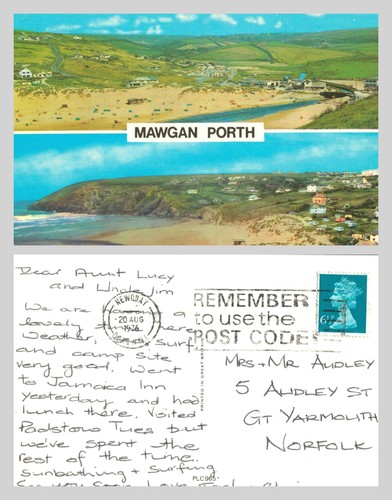 MAWGAN PORTH
Dear Aunt Lucy
and Uncle Jim
We are a
lovely here
Weather, Surf
and camp site
very good. Went
to Jamaica Inn
yesterday and had
lunch there. Visited
Padstow Tues but
we've spent the
rest of the time
sunbathing + surfing
NEWQUAY
20 AUG
1976
CORNWALL
REMEMBER
to use the
POST CODE
PRINTED IN GREAT
Mrs + Mr AUDLEY
5 AUDLEY ST
GT YARMOUTH
NORFOLK
See you soon Love